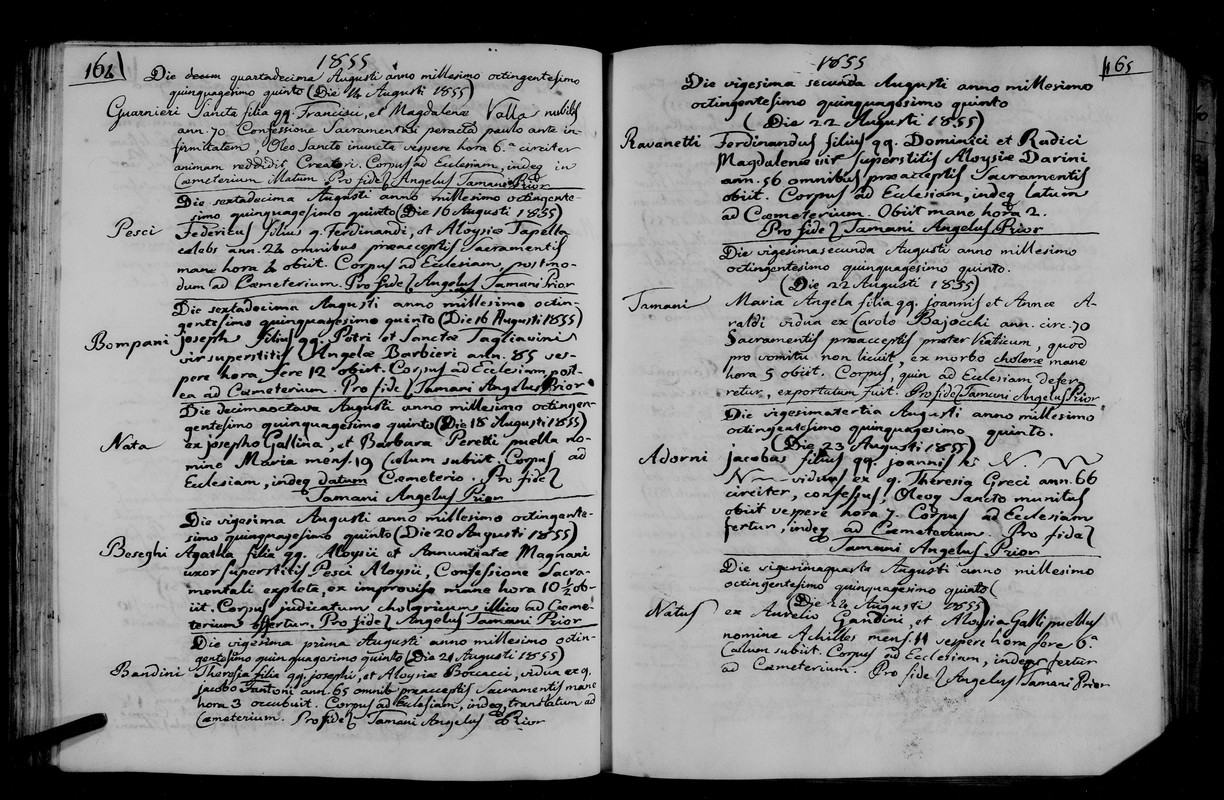 164
1855
Die decum quartadecima Augusti anno millesimo octingentesimo
quinquagesimo quinto (Die 14 Augusti 1855)
Guarnieri Sancta filia qq. Francisci, et Magdalenæ Valla nubilis
ann. 70. Confessione Sacramentali peracta paulo ante in-
firmitatem, Oleo Sancto inuncta vespere hora 6.a circiter
animam reddidit Creatori. Corpus ad Ecclesiam, indeq in
Cœmeterium illatum. Pro fide Angelus Tamani Prior
Die sextadecima Augusti anno millesimo octingente-
simo quinquagesimo quinto (Die 16 Augusti 1855)
Pesci Federicus filius q. Ferdinandi, et Aloysiæ Tapella
celebs ann. 22 omnibus præacceptis sacramentis
mane hora 2 obiit. Corpus ad Ecclesiam, postmo-
dum ad Cœmeterium. Pro fide Angelus Tamani Prior
Die sextadecima Augusti anno millesimo octin-
gentesimo quinquagesimo quinto (Die 16 Augusti 1855)
Bompani Joseph filius qq. Petri et Sanctæ Tagliavini
vir superstitis Angelæ Barbieri ann. 85 ves-
pere hora fere 12 obiit. Corpus ad Ecclesiam, post-
ea ad Cœmeterium. Pro fide Tamani Angelus Prior
Die decimaoctava Augusti anno millesimo octingen-
gentesimo quinquagesimo quinto (Die 18 Augusti 1855)
Nata ex Josepho Gallina, et Barbara Peretti puella no-
mine Maria mens. 19 Cœlum subiit. Corpus ad
Ecclesiam, indeq datum Cœmeterio. Pro fide
Tamani Angelus Prior
Die vigesima Augusti anno millesimo octingente-
simo quinquagesimo quinto (Die 20 Augusti 1855)
Beseghi Agatha filia qq. Aloysii et Annuntiatæ Magnani
uxor superstitis Pesci Aloysii, Confessione Sacra-
mentali expleta, ex improviso mane hora 10 ½ ob-
iit. Corpus judicatum cholericum illico ad Cœme-
terium effertur. Pro fide Angelus Tamani Prior
Die vigesima prima Augusti anno millesimo octin-
gentesimo quinquagesimo quinto (Die 21 Augusti 1855)
Bandini Theresia filia qq. Josephi, et Aloysiæ Boccacci, vidua ex q.
Jacobo Fantoni ann. 65 omnib præacceptis Sacramentis mane
hora 3 occubuit. Corpus ad Ecclesiam, indeq translatum ad
Cœmeterium. Pro fide Tamani Angelus Prior
1855
165
Die vigesima secunda Augusti anno millesimo
octingentesimo quinquagesimo quinto
(Die 22 Augusti 1855)
Ravanetti Ferdinandus filius qq. Dominici et Radici
Magdalenæ vir superstitis Aloysiæ Darini
ann. 56 omnibus præacceptis Sacramentis
obiit. Corpus ad Ecclesiam, indeq latum
ad Cœmeterium. Obiit mane hora 2.
Pro fide Tamani Angelus Prior
Die vigesimasecunda Augusti anno millesimo
octingentesimo quinquagesimo quinto.
(Die 22 Augusti 1855)
Tamani Maria Angela filia qq. Joannis et Annæ A-
raldi vidua ex Carolo Bajocchi ann. circ. 70
Sacramentis præacceptis præter Viaticum, quod
pro vomitu non licuit, ex morbo choleræ mane
hora 5 obiit. Corpus, quin ad Ecclesiam defer-
retur, exportatum fuit. Pro fide Tamani Angelus Prior
Die vigesimatertia Augusti anno millesimo
octingentesimo quinquagesimo quinto.
(Die 23 Augusti 1855)
Adorni Jacobus filius qq. Joannis et N. N
N viduus ex q. Theresia Greci ann. 66
circiter, confessus, Oleoq Sancto munitus
obiit vespere hora 7. Corpus ad Ecclesiam
fertur, indeq ad Cœmeterium. Pro fide
Tamani Angelus Prior
Die vigesimaquarta Augusti anno millesimo
octingentesimo quinquagesimo quinto (
(Die 24 Augusti 1855)
Natus ex Aurelio Gandini, et Aloysia Galli puellus
nomine Achilles mens. 11 vespere hora fere 6.a
Cœlum subiit. Corpus ad Ecclesiam, indeq fertur
ad Cœmeterium. Pro fide Angelus Tamani Prior